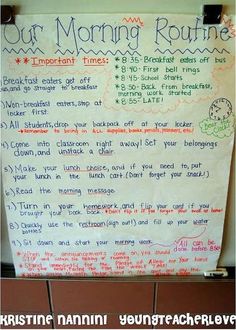 Our Morning Routine
**Important Times:
*8:35- Breakfast eaters off bus
*8:40- First bell rings
*8:45- School Starts
*8:50- Back from breakfast, morning work started
*8:55- LATE!
Breakfast eaters get off
bus, and go straight to breakfast
2) Non-breakfast eaters, stop at
locker first.
3) All students, drop your backpack off at your locker.
*Remember to bring in ALL supplies, books, pencils, planners, etc.!
4) Come into classroom right away! Set your belongings
down, and unstack a chair.
5) Make your lunch choice, and if you need to, put
your lunch in the lunch cart (Don't forget your snack!)
6) Read the morning message.
7) Turn in your homework, and flip your card if you
brought your book back.
8) Quickly use the restroom (sign out!) and fill up your water
bottles.
9) Sit down and start your morning work.
All can be done before 8:50
*When the announcements come on, you should
KRISTINE NANNINI YOUNGTEACHERLOVE